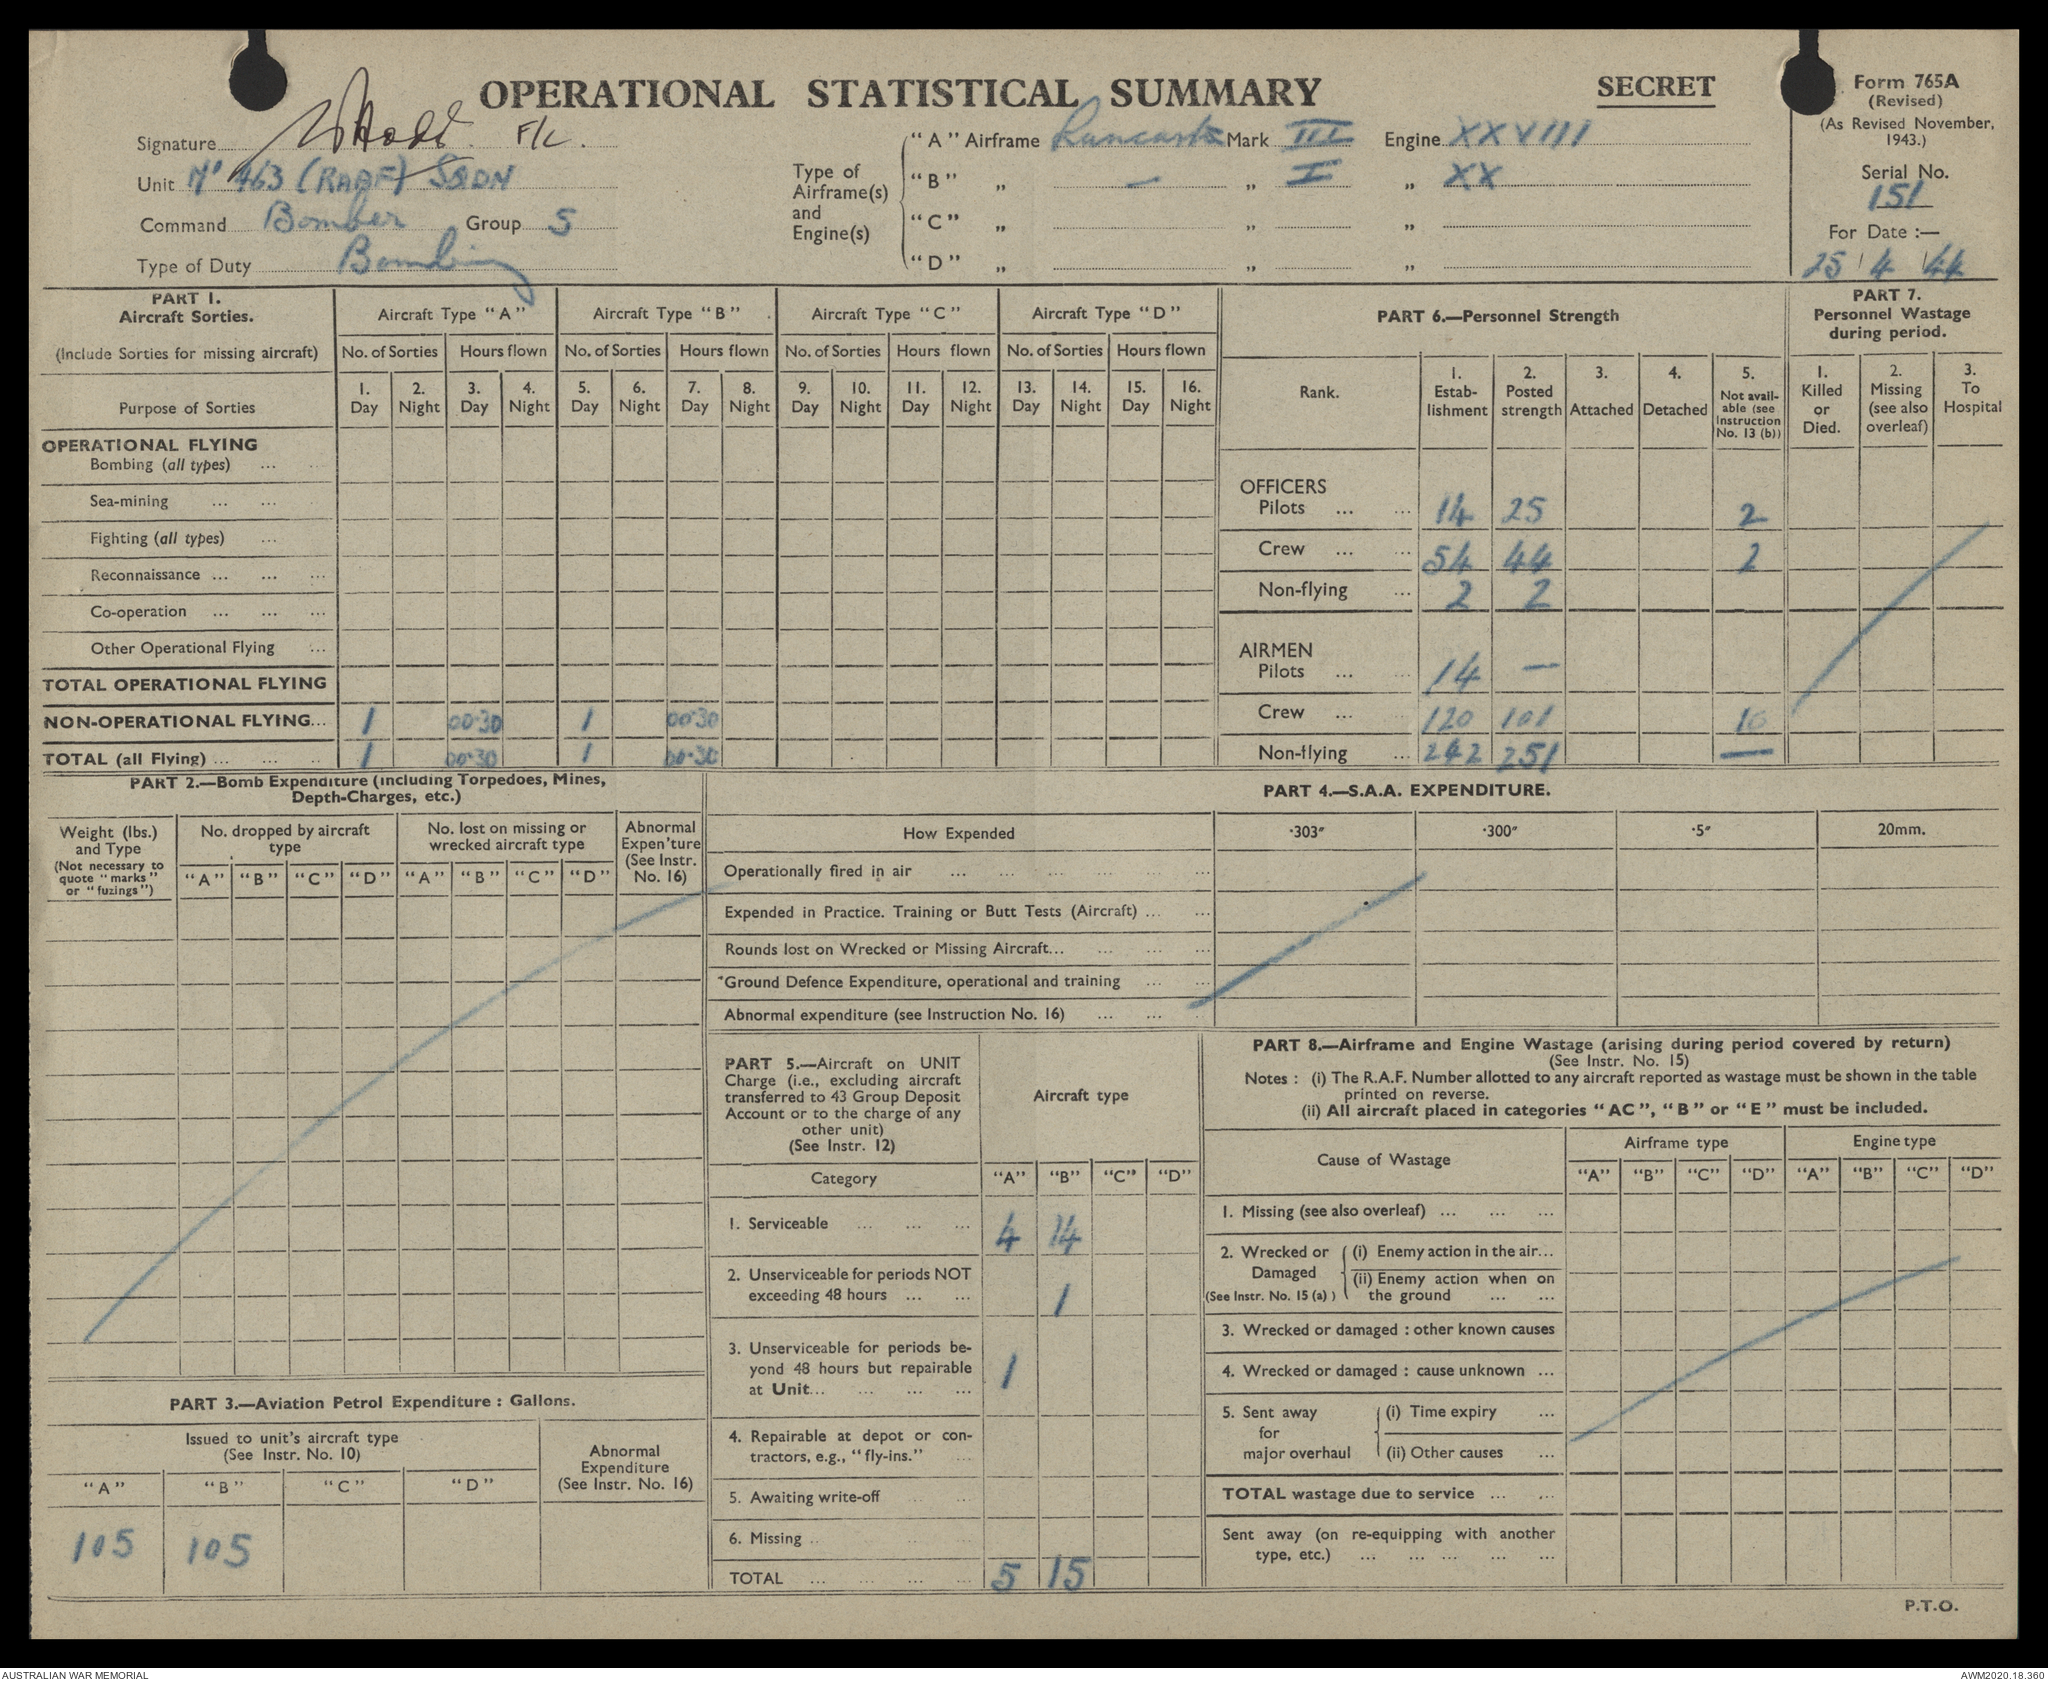 OPERATIONAL STATISTICAL SUMMARY
SECRET
Form 765A
(Revised)
(As Revised November,
1943.)
Serial No.
151
For Date :—
25 / 4 / 44
Signature F/L.
Unit No 463 (RAAF) SQDN
Command Bomber Group 5
Type of Duty Bombing
Type of
Airframe(s)
and
Engine(s)
"A" Airframe Lancaster Mark III Engine XXVIII
"B" „ — „ I „ XX
"C" „ „ „
"D" „ „ „
PART 1.
Aircraft Sorties.
(Include Sorties for missing aircraft)
Purpose of Sorties
Aircraft Type "A" Aircraft Type "B" Aircraft Type "C" Aircraft Type "D"
No. of Sorties Hours flown No. of Sorties Hours flown No. of Sorties Hours flown No. of Sorties Hours flown
1. 2. 3. 4. 5. 6. 7. 8. 9. 10. 11. 12. 13. 14. 15. 16.
Day Night Day Night Day Night Day Night Day Night Day Night Day Night Day Night
OPERATIONAL FLYING
Bombing (all types) ...
Sea-mining ... ...
Fighting (all types) ...
Reconnaissance ... ... ...
Co-operation ... ... ...
Other Operational Flying ...
TOTAL OPERATIONAL FLYING
NON-OPERATIONAL FLYING... 1 00·30 1 00·30
TOTAL (all Flying) ... ... ... 1 00·30 1 00·30
PART 6.—Personnel Strength
Rank.
1. Estab-lishment
2. Posted strength
3. Attached
4. Detached
5. Not avail-able (see Instruction No. 13 (b))
OFFICERS
Pilots ... ... 14 25 2
Crew ... ... 54 44 2
Non-flying ... 2 2
AIRMEN
Pilots ... ... 14 —
Crew ... ... 120 101 10
Non-flying ... 242 251 —
PART 7.
Personnel Wastage
during period.
1. Killed or Died.
2. Missing (see also overleaf)
3. To Hospital
PART 2.—Bomb Expenditure (including Torpedoes, Mines,
Depth-Charges, etc.)
Weight (lbs.)
and Type
(Not necessary to
quote "marks"
or "fuzings")
No. dropped by aircraft
type
No. lost on missing or
wrecked aircraft type
Abnormal
Expen'ture
(See Instr.
No. 16)
"A" "B" "C" "D" "A" "B" "C" "D"
PART 4.—S.A.A. EXPENDITURE.
How Expended ·303″ ·300″ ·5″ 20mm.
Operationally fired in air ... ... ... ... ... ...
Expended in Practice. Training or Butt Tests (Aircraft) ... ...
Rounds lost on Wrecked or Missing Aircraft... ... ... ...
*Ground Defence Expenditure, operational and training ... ...
Abnormal expenditure (see Instruction No. 16) ... ...
PART 3.—Aviation Petrol Expenditure : Gallons.
Issued to unit's aircraft type
(See Instr. No. 10)
Abnormal
Expenditure
(See Instr. No. 16)
"A" "B" "C" "D"
105 105
PART 5.—Aircraft on UNIT
Charge (i.e., excluding aircraft
transferred to 43 Group Deposit
Account or to the charge of any
other unit)
(See Instr. 12)
Aircraft type
Category "A" "B" "C" "D"
1. Serviceable ... ... ... 4 14
2. Unserviceable for periods NOT
exceeding 48 hours ... ... 1
3. Unserviceable for periods be-
yond 48 hours but repairable
at Unit... ... ... ... 1
4. Repairable at depot or con-
tractors, e.g., "fly-ins." ...
5. Awaiting write-off ... ...
6. Missing .. ... ...
TOTAL ... ... ... ... 5 15
PART 8.—Airframe and Engine Wastage (arising during period covered by return)
(See Instr. No. 15)
Notes : (i) The R.A.F. Number allotted to any aircraft reported as wastage must be shown in the table
printed on reverse.
(ii) All aircraft placed in categories "AC", "B" or "E" must be included.
Cause of Wastage
Airframe type Engine type
"A" "B" "C" "D" "A" "B" "C" "D"
1. Missing (see also overleaf) ... ... ...
2. Wrecked or Damaged (See Instr. No. 15 (a) )
(i) Enemy action in the air...
(ii) Enemy action when on
the ground ... ...
3. Wrecked or damaged : other known causes
4. Wrecked or damaged : cause unknown ...
5. Sent away for major overhaul
(i) Time expiry ...
(ii) Other causes ...
TOTAL wastage due to service ... ...
Sent away (on re-equipping with another
type, etc.) ... ... ... ... ...
P.T.O.
AUSTRALIAN WAR MEMORIAL
AWM2020.18.360